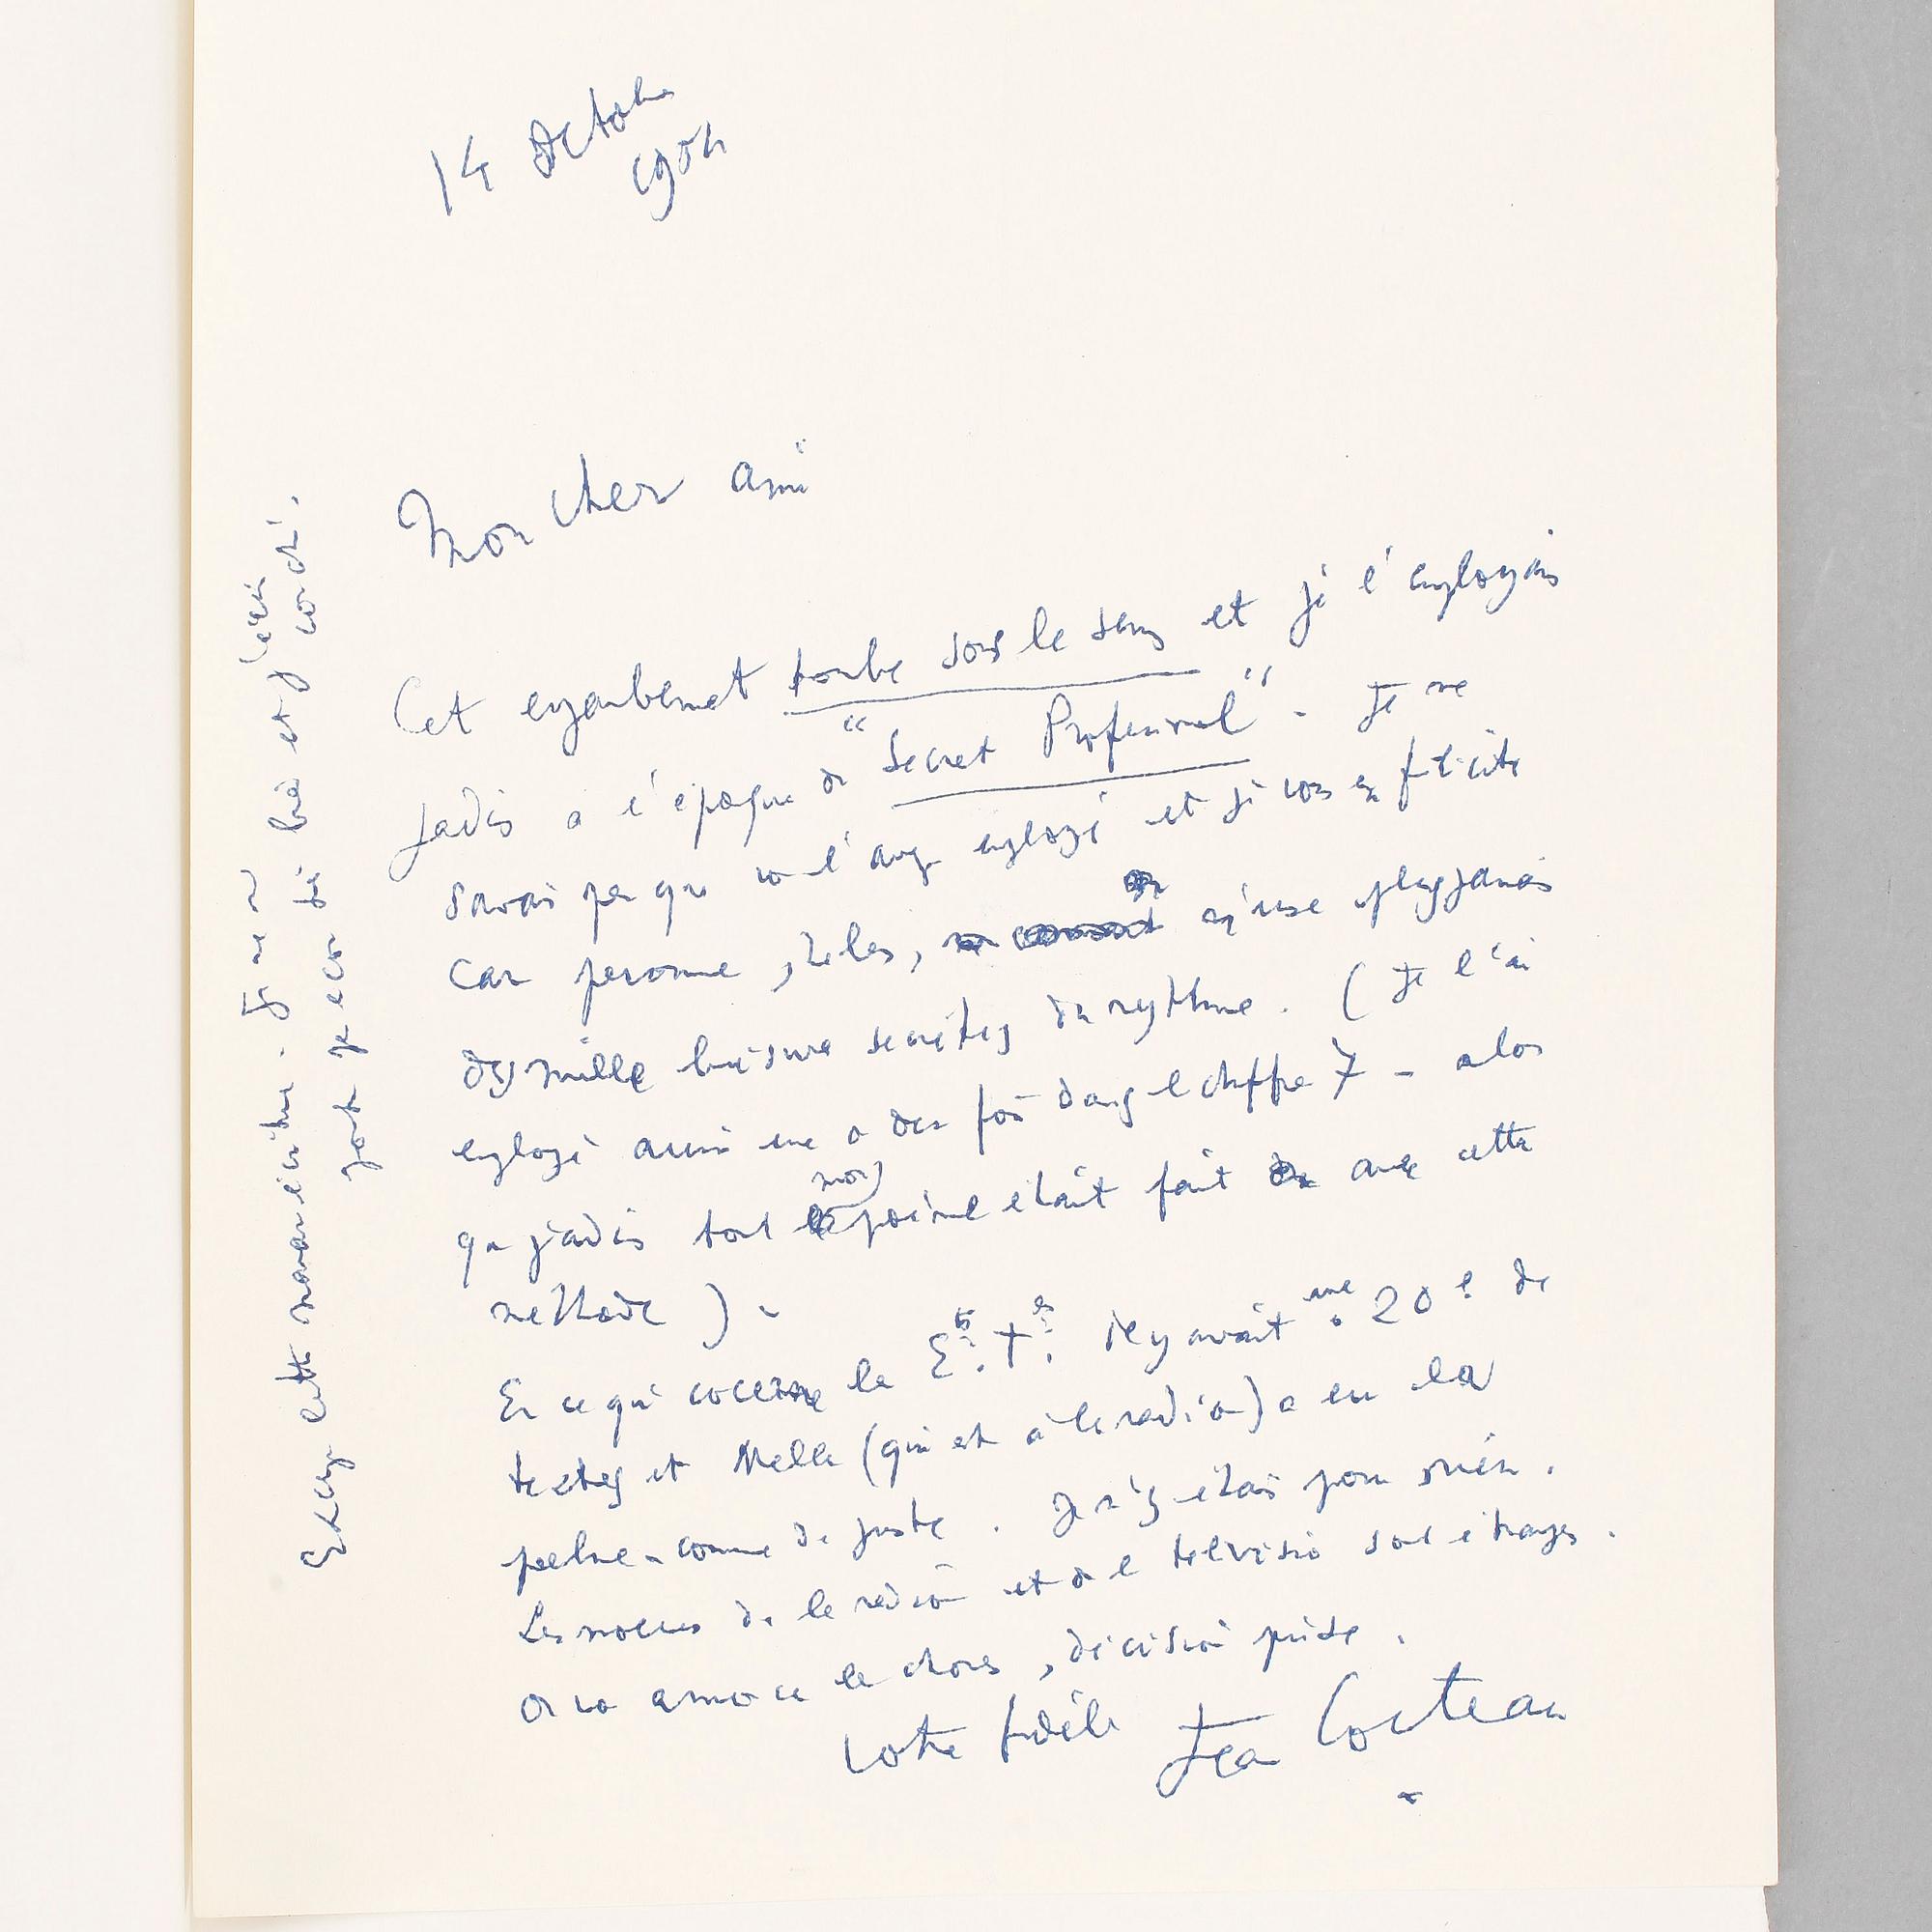 14 Octobre
Mon cher ami
Cet enjambement tombe sous le sens et je l'employais
jadis a l'époque de "Secret Professionnel". Je ne
savais pas que vous l'aviez employé et je vous en félicite
car personne, hélas, n'use plus jamais
des mille secrètes du rythme. (Je l'ai
employé aussi une ou deux fois dans le chiffre 7 - alors
que jadis tout mon poème était fait avec cette
methode).
En ce qui concerne la il y avait une 20e de
textes et Melle (qui est à la radio) a eu la
- comme de juste. Je n'y étais pour rien.
Les moeurs de la radio et de la television sont étranges.
On vous annonce les choses, décision prise.
Votre fidèle Jean Cocteau
*
Excusez cette mauvaise écriture. Je ne
suis pas encore bien et j'écris
couché.